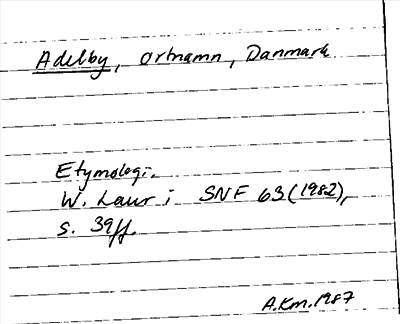 Adelby, ortnamn, Danmark
Etymologi.
W. Laur i SNF 63 (1982),
s. 39ff.
A.Km. 1987